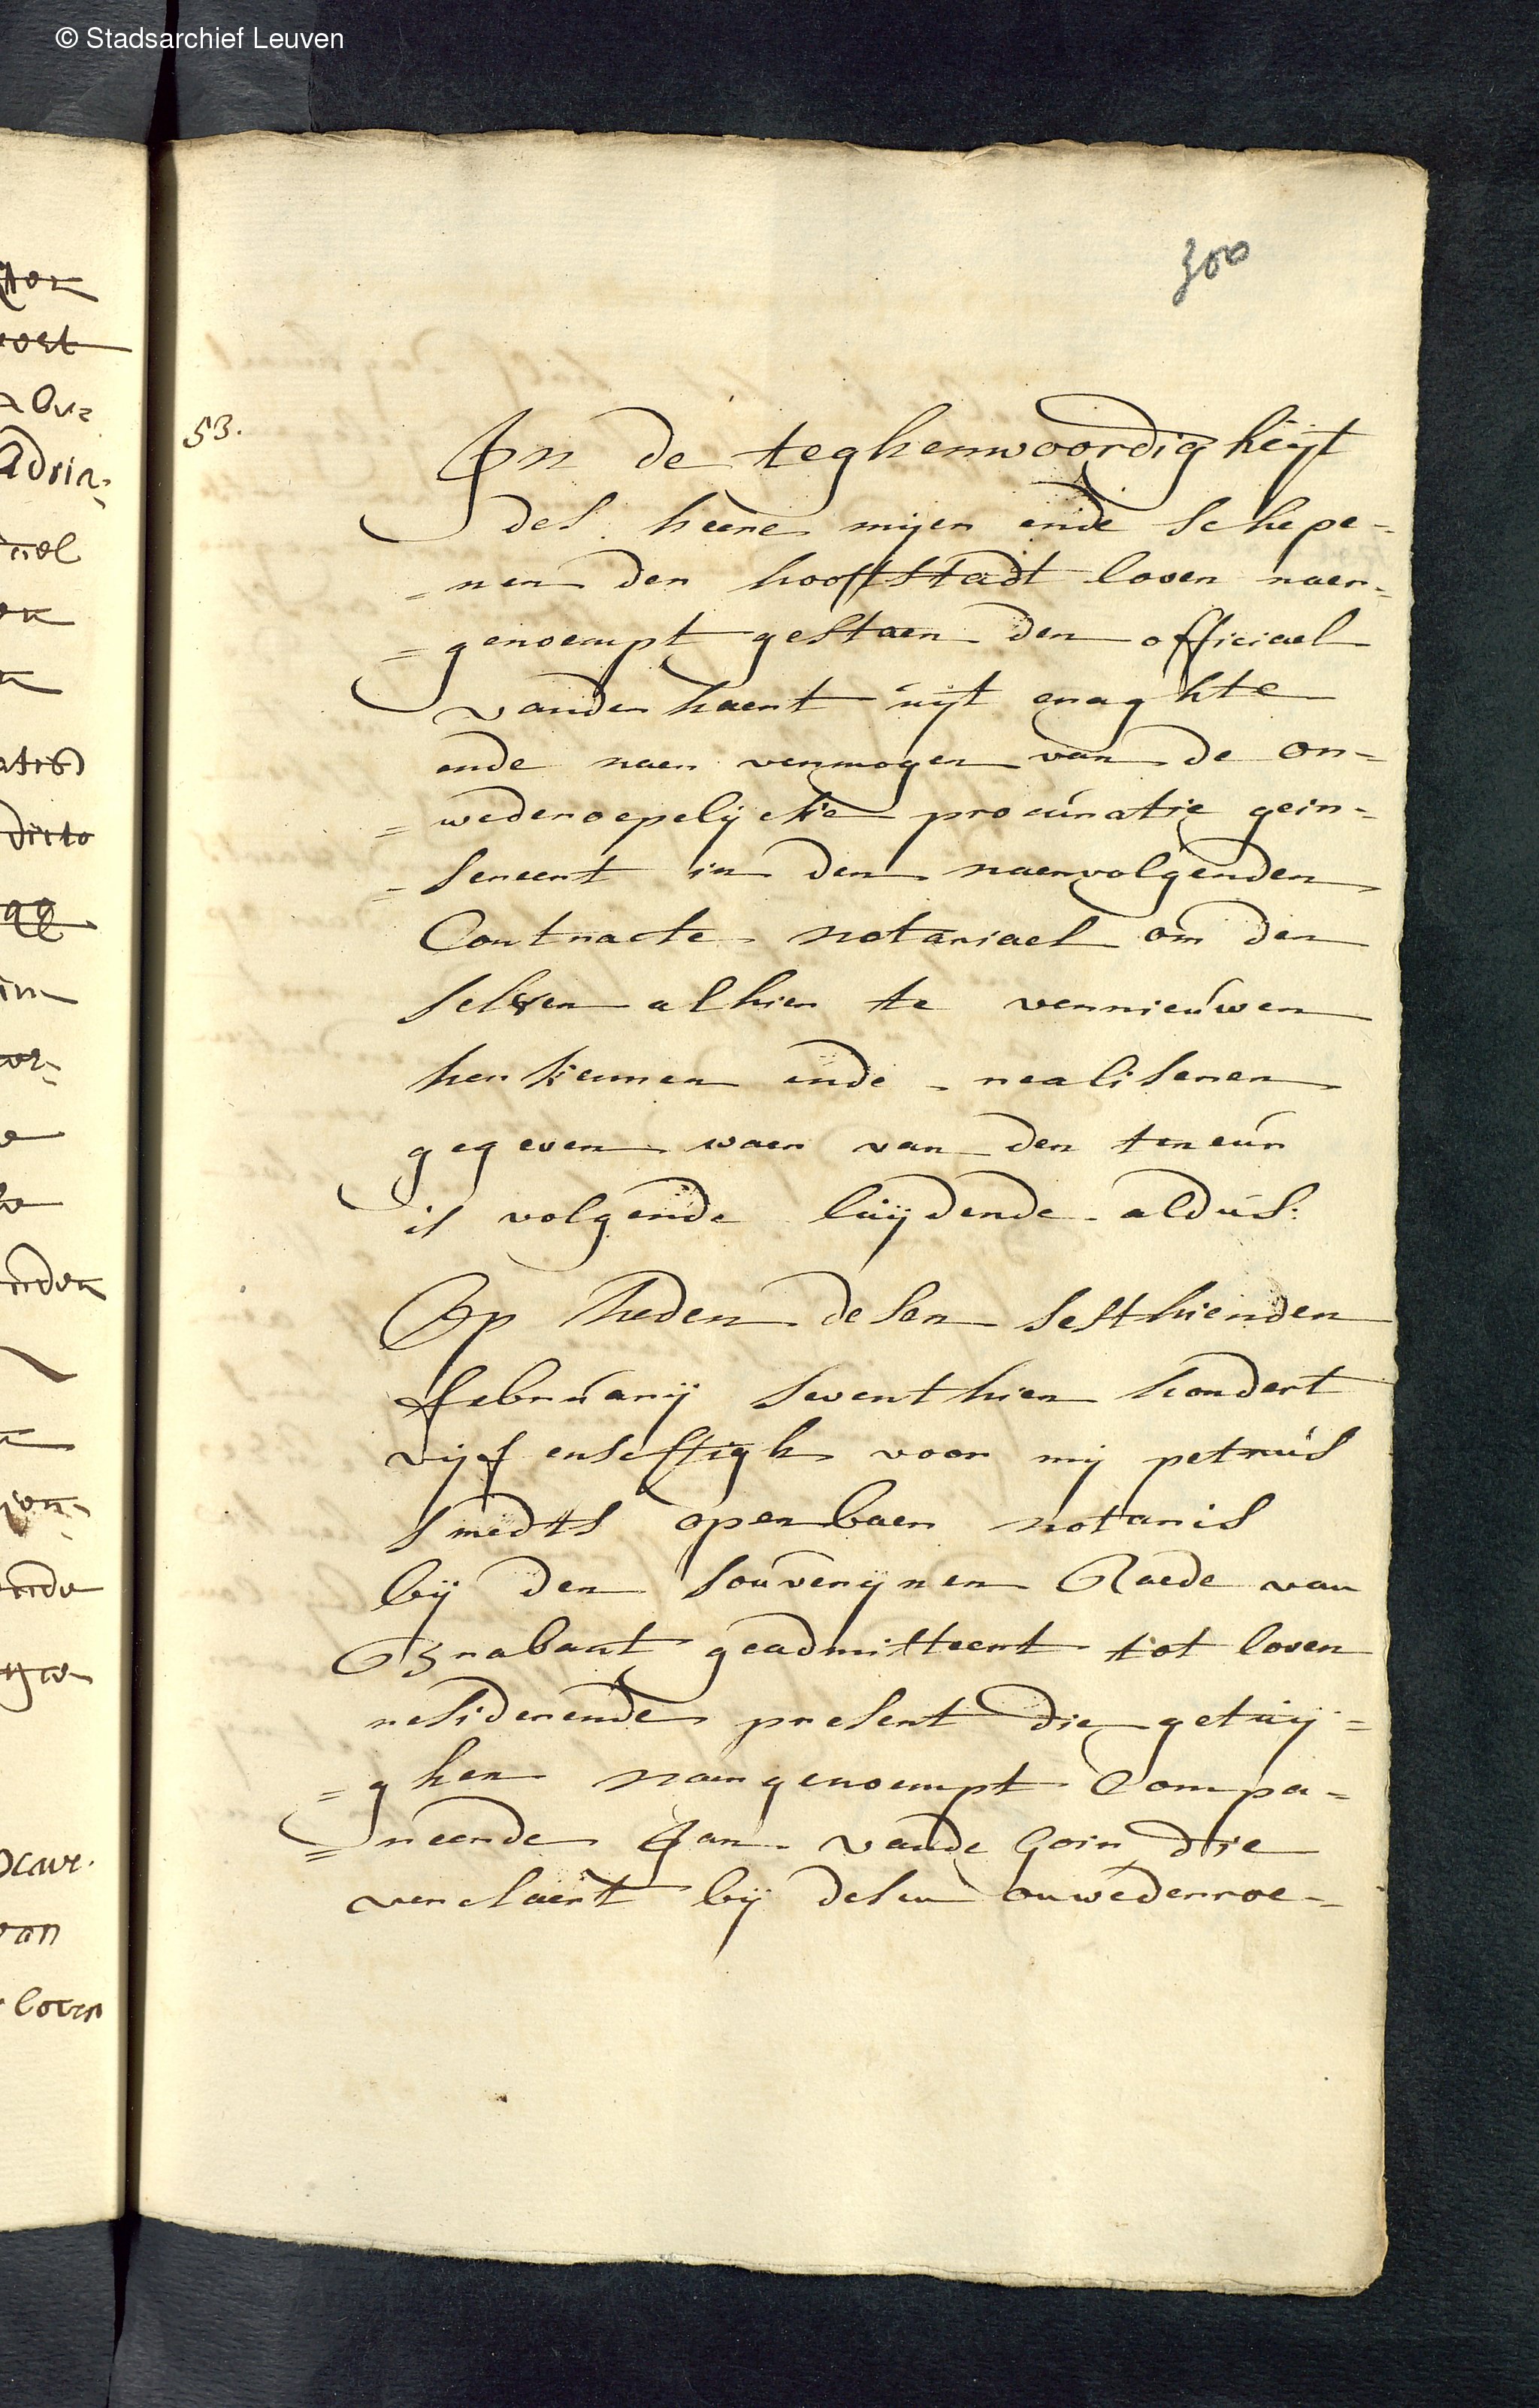 © Stadsarchief Leuven
300
53.
In de teghenwoordigheijt
des heere mijer ende schepe-
-nen der hooftstadt loven naer-
=genoempt gestaen den officiael
vander haert uijt craghte
ende naer vermogen van de on-
=wederoepelijcke procuratie gein-
-sereert in den naervolgenden
Contracte notariael om den
selven alhier te vernieuwen
herkennen ende realiseren
gegeven waer van den teneur
is volgende luijdende aldus:
Op heden desen sesthienden
februarij seventhien hondert
vijf ensestigh voor mij petrus
smedts openbaer notaris
bij den souverijnen Raede van
Brabant geadmitteert tot loven
residerende present die getuij=
=ghen naergenoempt Compa=
=reerde Jan vande Goir die
verclaert bij desen onwederroe-
Adria=
ditto
van
loven